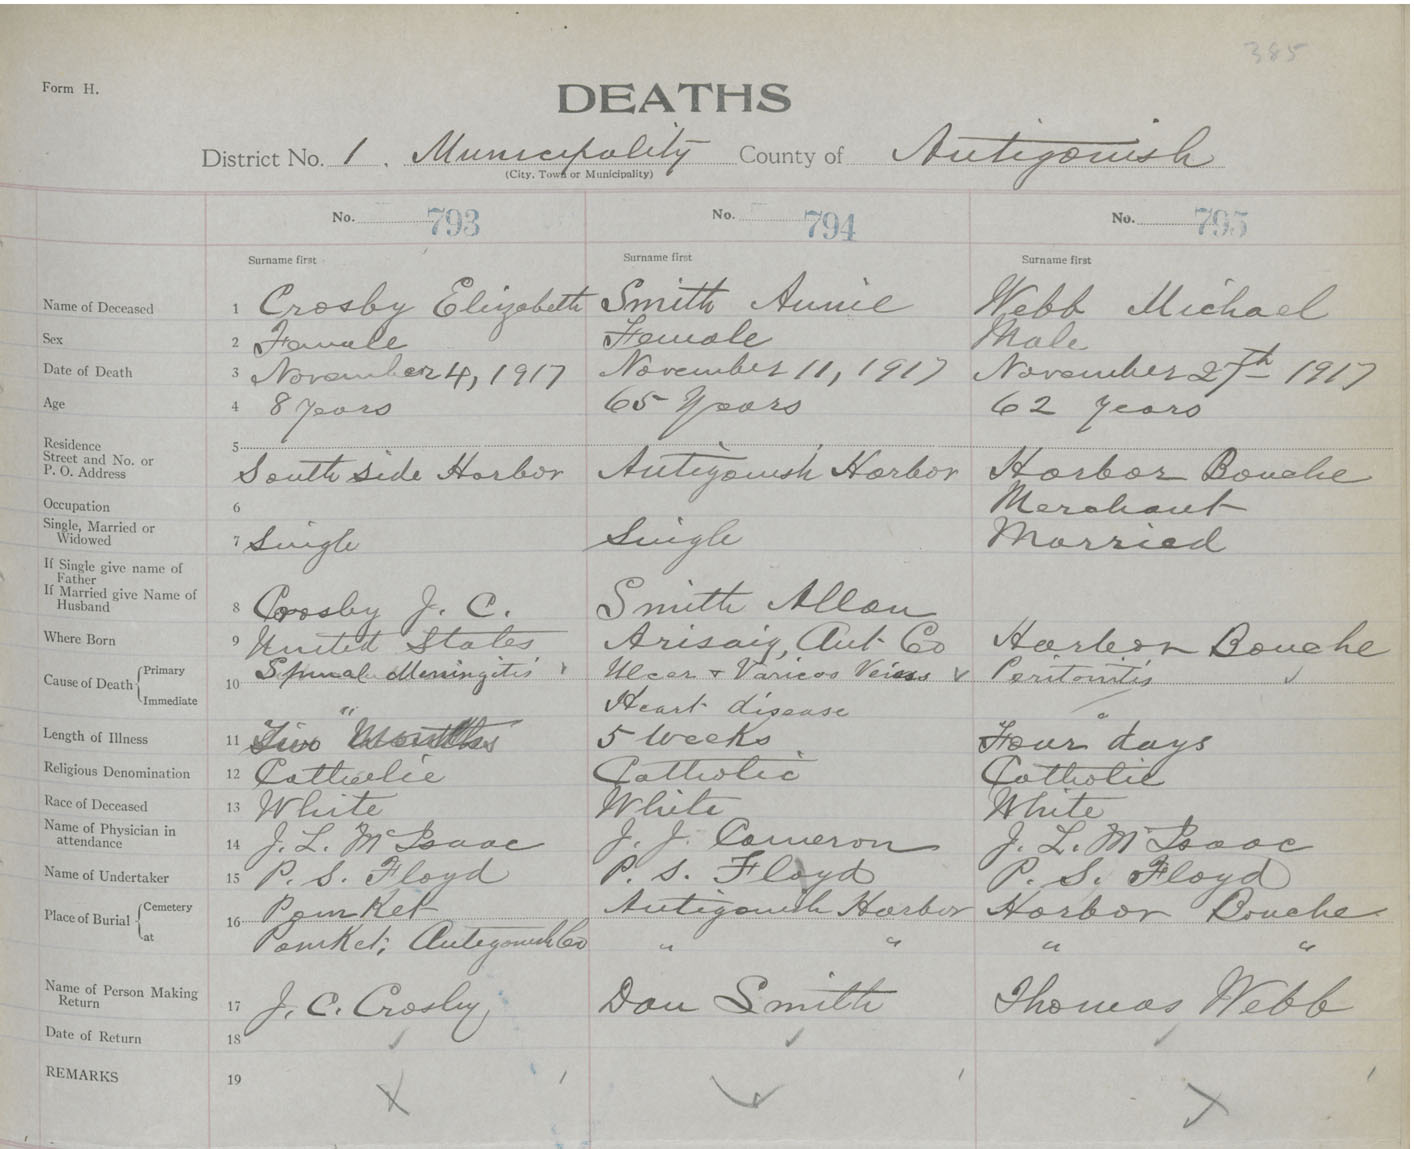 385
Form H.
DEATHS
District No. 1. Municipality County of Antigonish
(City, Town or Municipality)
No. 793 No. 794 No. 795
Surname first Surname first Surname first
Name of Deceased 1 Crosby Elizabeth Smith Annie Webb Michael
Sex 2 Female Female Male
Date of Death 3 November 4, 1917 November 11, 1917 November 27th 1917
Age 4 8 years 65 Years 62 years
Residence 5
Street and No. or
P. O. Address South side Harbor Antigonish Harbor Harbor Bouche
Occupation 6 Merchant
Single, Married or
Widowed 7 Single Single Married
If Single give name of
Father
If Married give Name of
Husband 8 Crosby J. C. Smith Allan
Where Born 9 United States Arisaig, Ant Co Harbor Bouche
Cause of Death { Primary 10 Spinal Meningitis Ulcer + Varicos Veins Peritonitis
Immediate " Heart disease "
Length of Illness 11 Two Months 5 Weeks Four days
Religious Denomination 12 Catholic Catholic Catholic
Race of Deceased 13 White White White
Name of Physician in
attendance 14 J. L. McIsaac J. J. Cameron J. L. McIsaac
Name of Undertaker 15 P. S. Floyd P. S. Floyd P. S. Floyd
Place of Burial { Cemetery 16 Pomket Antigonish Harbor Harbor Bouche
at Pomket, Antigonish Co " " " "
Name of Person Making
Return 17 J. C. Crosby Dan Smith Thomas Webb
Date of Return 18
REMARKS 19